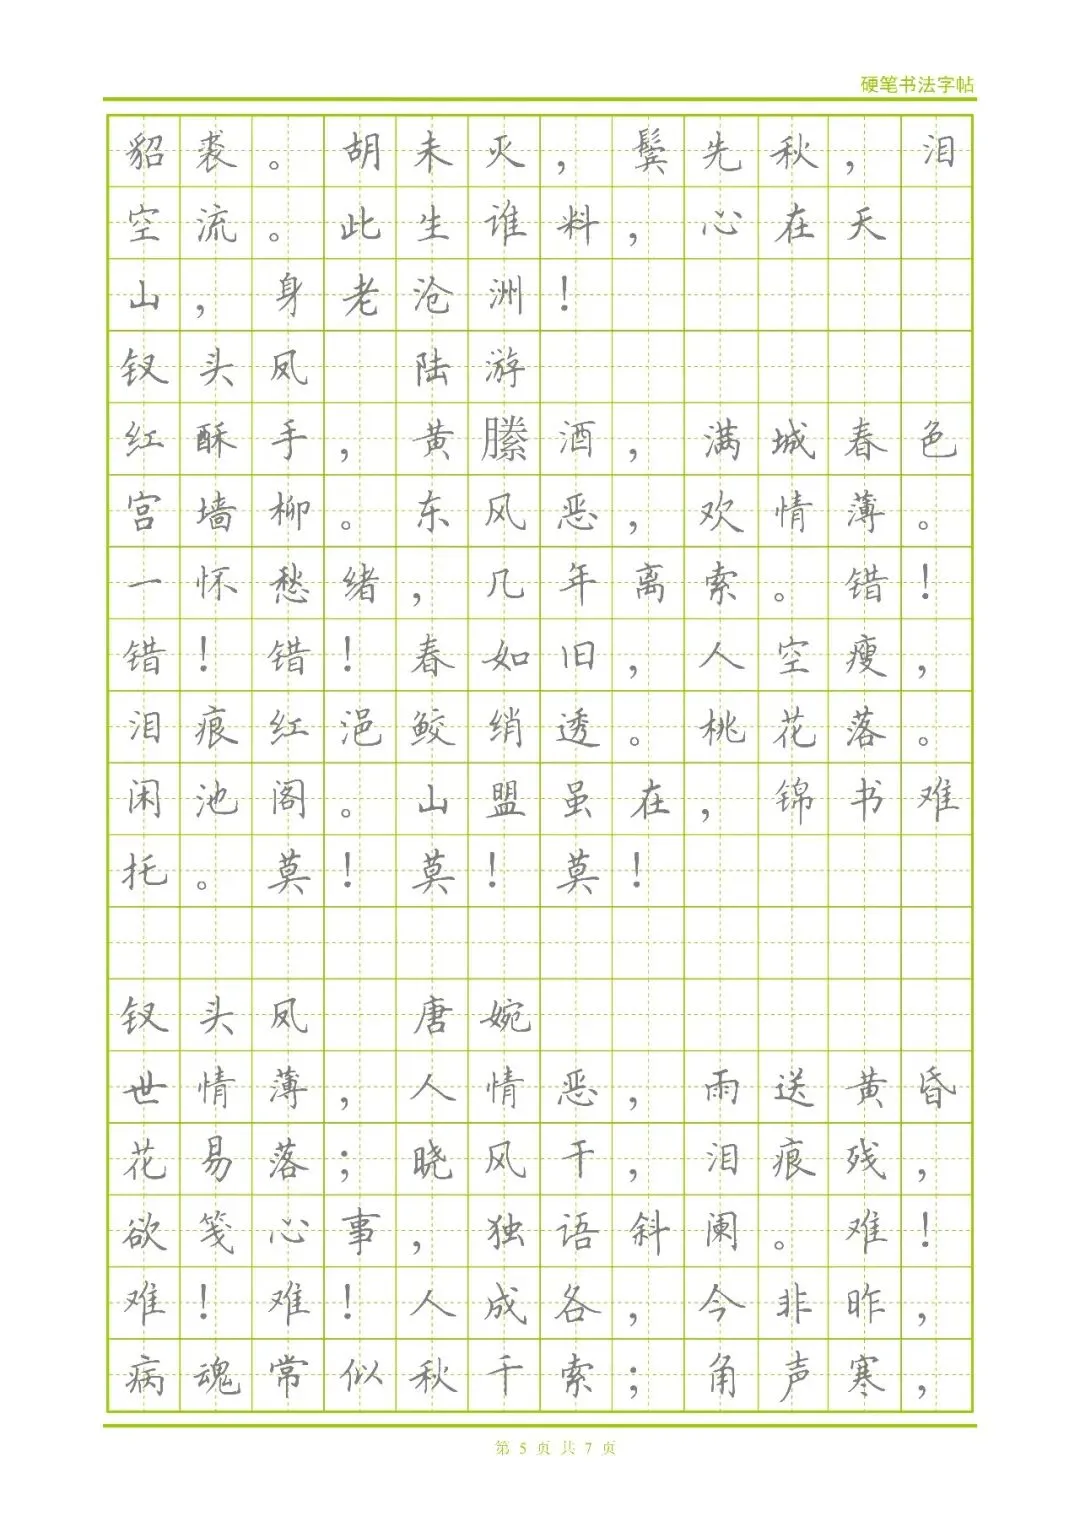 硬笔书法字帖
貂裘。胡未灭，鬓先秋，泪
空流。此生谁料，心在天
山，身老沧洲！
钗头凤 陆游
红酥手，黄縢酒，满城春色
宫墙柳。东风恶，欢情薄。
一怀愁绪，几年离索。错！
错！错！春如旧，人空瘦，
泪痕红浥鲛绡透。桃花落。
闲池阁。山盟虽在，锦书难
托。莫！莫！莫！
钗头凤 唐婉
世情薄，人情恶，雨送黄昏
花易落；晓风干，泪痕残，
欲笺心事，独语斜阑。难！
难！难！人成各，今非昨，
病魂常似秋千索；角声寒，
第 5 页 共 7 页